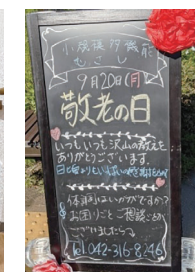 小規模多機能
むさし
9月20日(月)
敬老の日
いつもいつも沢山の教えを
ありがとうございます。
体調はいかがですか?
お困りごとご相談ごと
ございましたら
Tel 042-316-8246